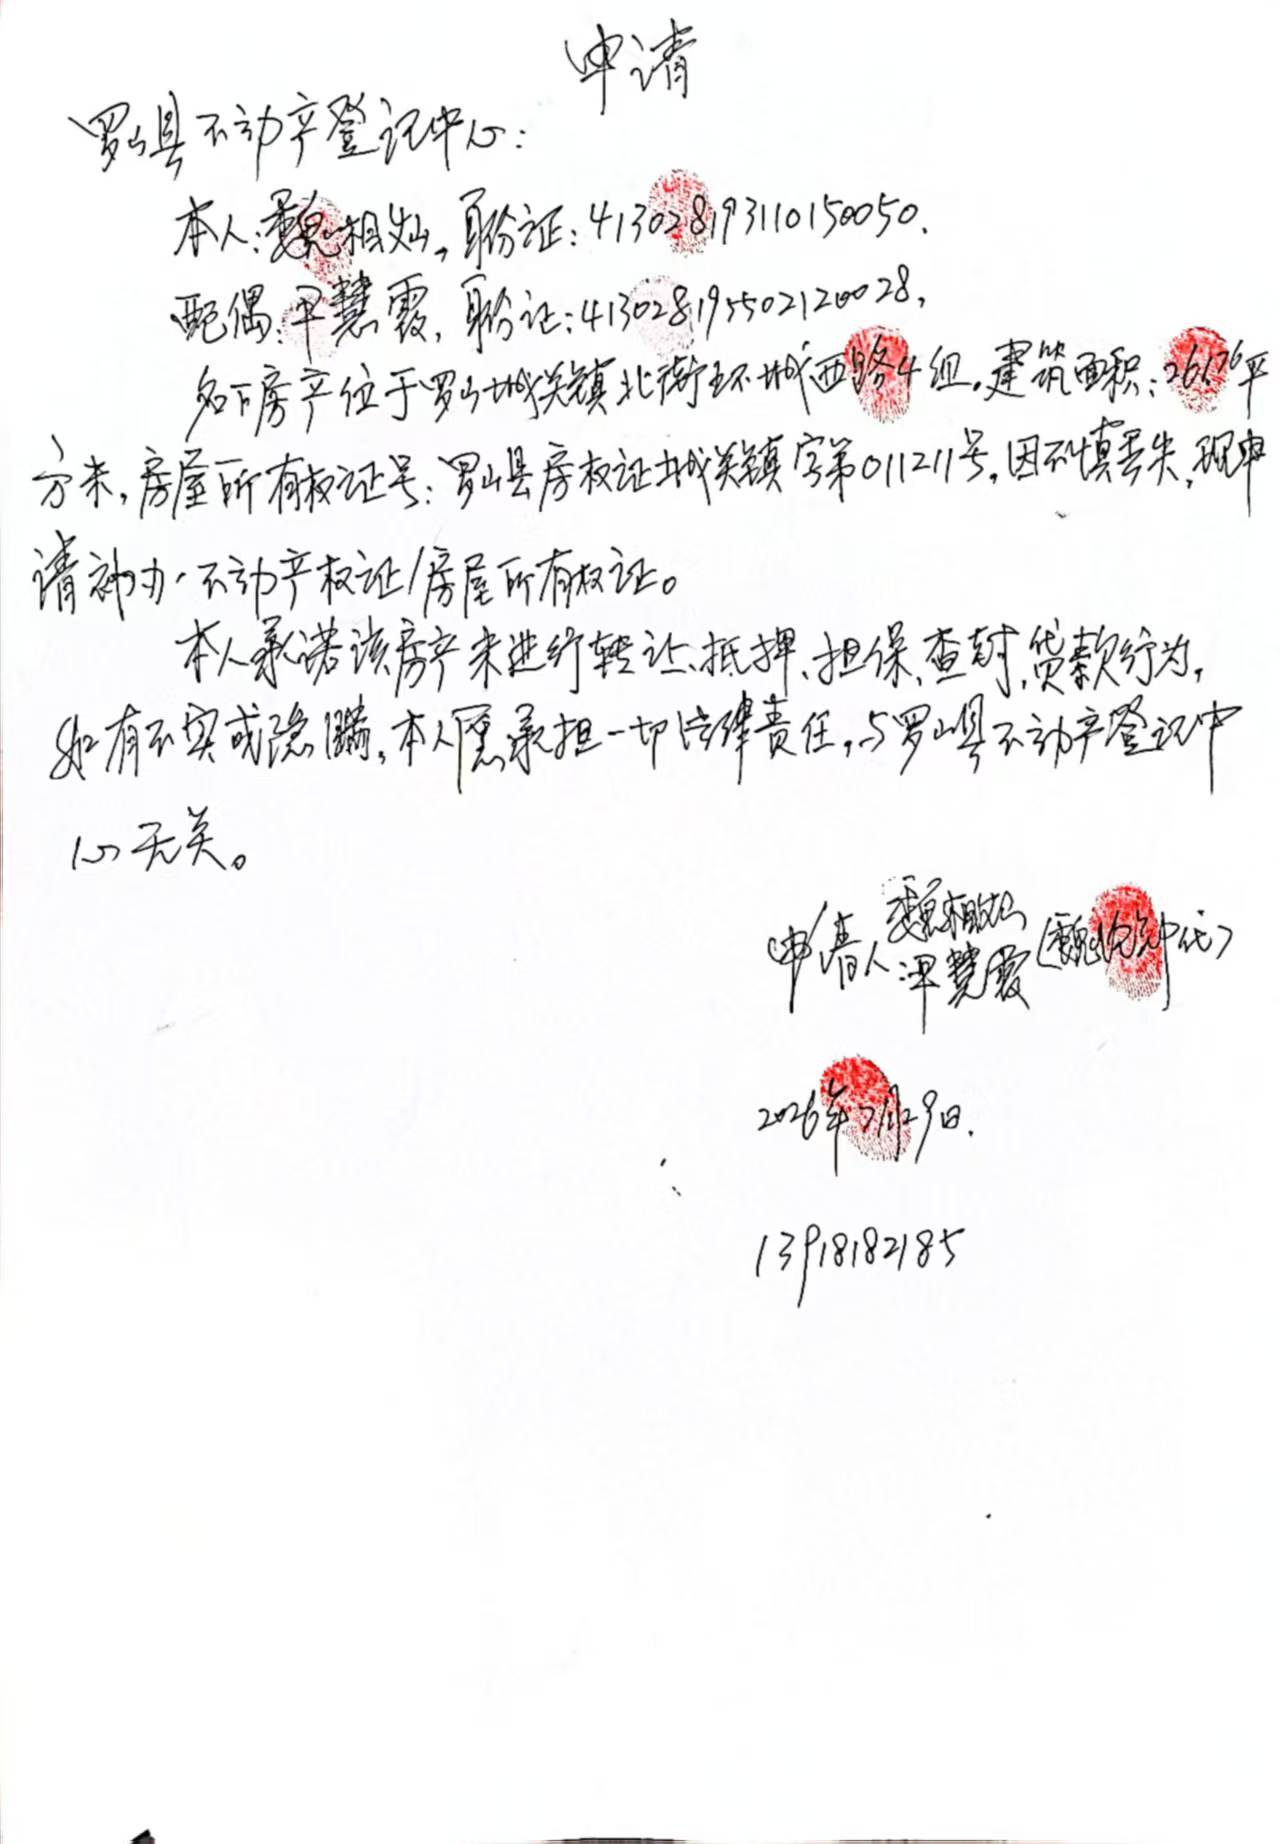 申请
罗山县不动产登记中心：
本人：魏相灿，身份证：413028193110150050.
配偶：甲慧霞，身份证：413028195502120028，
名下房产位于罗山城关镇北街环城西路4组。建筑面积：26.76平
方米，房屋所有权证号：罗山县房权证城关镇字第011211号，因不慎丢失，现申
请补办不动产权证/房屋所有权证。
本人承诺该房产未进行转让、抵押、担保、查封，贷款行为，
如有不实或隐瞒，本人愿承担一切法律责任，与罗山县不动产登记中
心无关。
申请人：魏相灿
甲慧霞（魏 代）
2026年 月29日.
13918182185